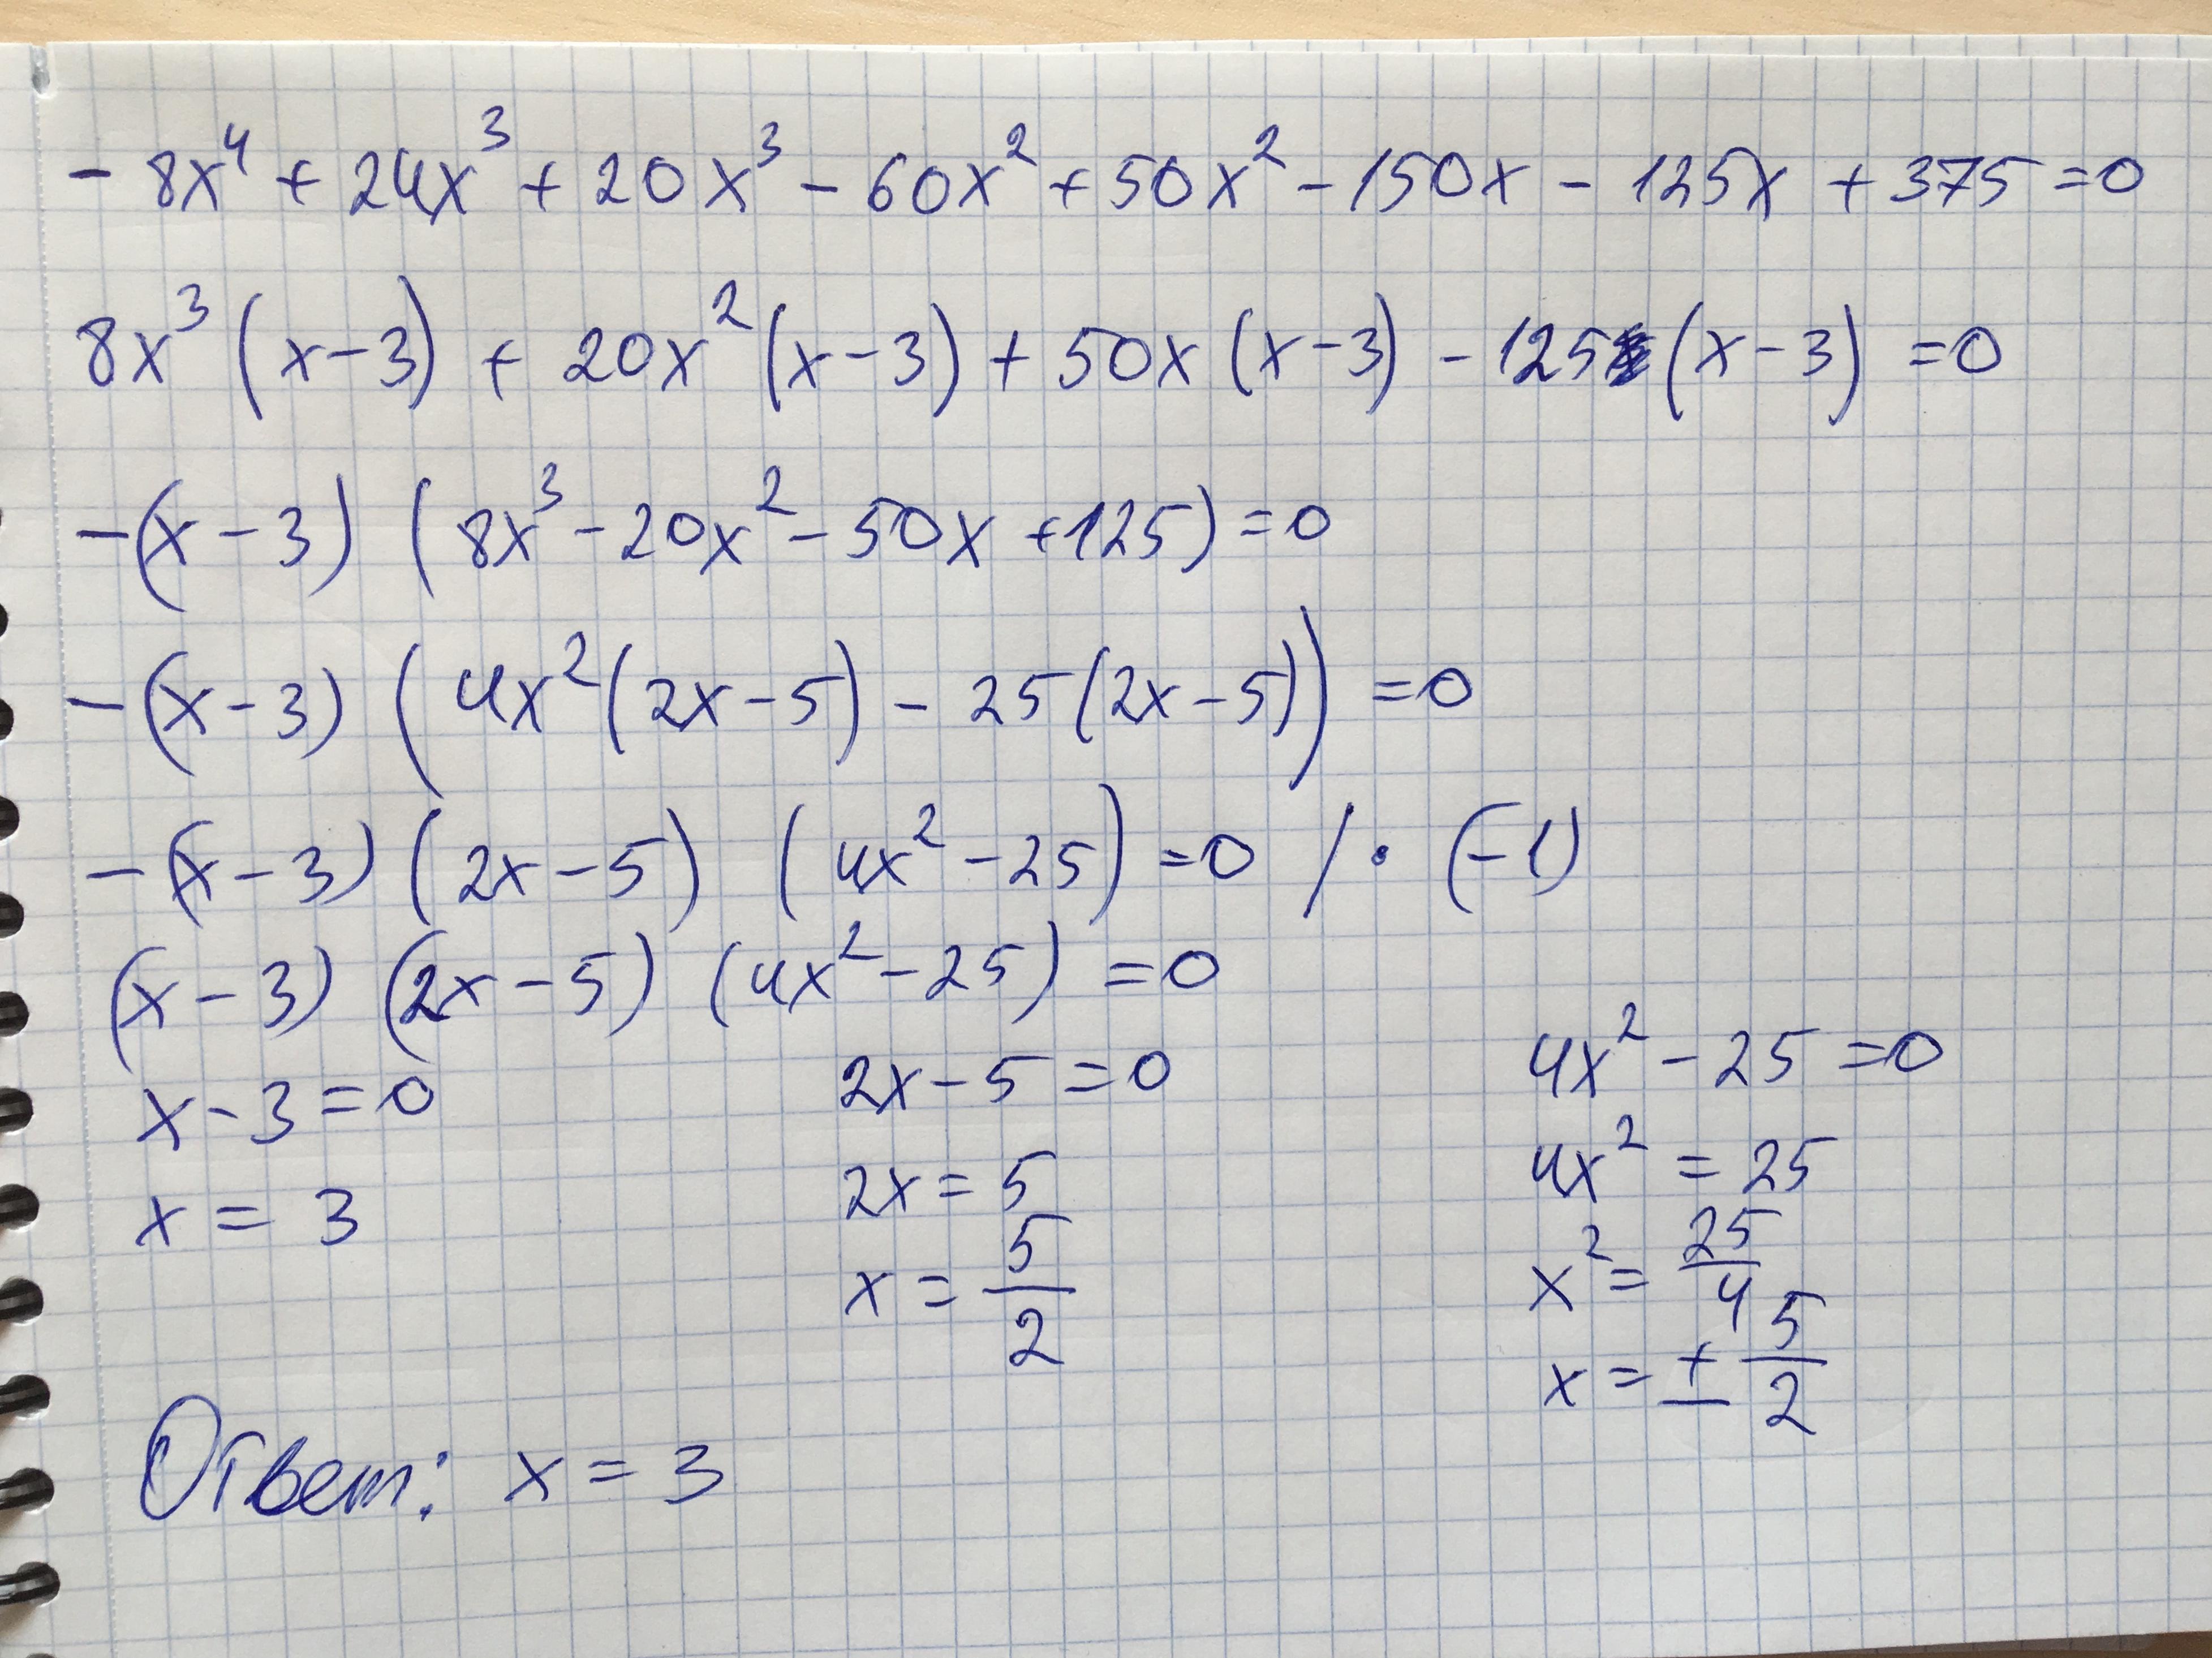 - 8x⁴ + 24x³ + 20x³ - 60x² + 50x² - 150x - 125x + 375 = 0
8x³ (x-3) + 20x² (x-3) + 50x (x-3) - 125 (x-3) = 0
-(x-3) (8x³ - 20x² - 50x + 125) = 0
-(x-3) (4x² (2x-5) - 25 (2x-5)) = 0
-(x-3) (2x-5) (4x² - 25) = 0 / · (-1)
(x-3) (2x-5) (4x² - 25) = 0
x-3=0 2x-5=0 4x² - 25 = 0
x = 3 2x = 5 4x² = 25
x = 5/2 x² = 25/4
x = ± 5/2
Ответ: x = 3